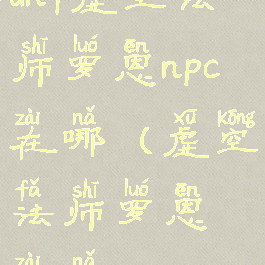 shī luó ēn
师罗恩npc
zài nǎ xū kōng
在哪（虚空
fǎ shī luó ēn
法师罗恩
zài nǎ